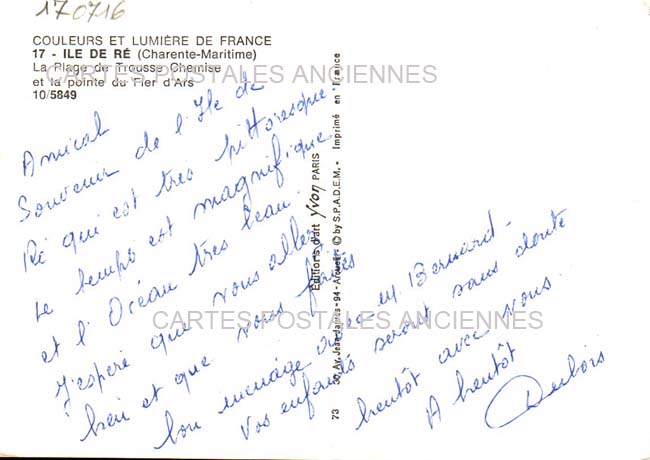 170716
COULEURS ET LUMIÈRE DE FRANCE
17 - ILE DE RÉ (Charente-Maritime)
La Plage de Trousse Chemise
et la pointe du Fier d'Ars
10/5849
CARTES POSTALES ANCIENNES
Amical
Souvenir de l'Ile de
Ré qui est très pittoresque
Le temps est magnifique
et l'Océan très beau.
J'espère que vous allez
bien et que vous faites
bon ménage avec M Bernard -
Vos enfants seront sans doute
bientôt avec vous.
A bientôt
Dubois
CARTES POSTALES ANCIENNES
Editions d'art yvon PARIS
30, Av. Jean-Jaurès - 94 - Arcueil - © by S.P.A.D.E.M. - Imprimé en France
73